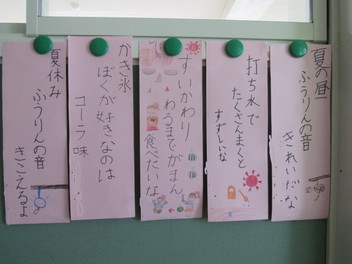 夏の昼
ふうりんの音
きれいだな
打ち水で
たくさんまくと
すずしいな
すいかわり
わるまでがまん
食べたいな
かき氷
ぼくが好きなのは
コーラ味
夏休み
ふうりんの音
きこえるよ